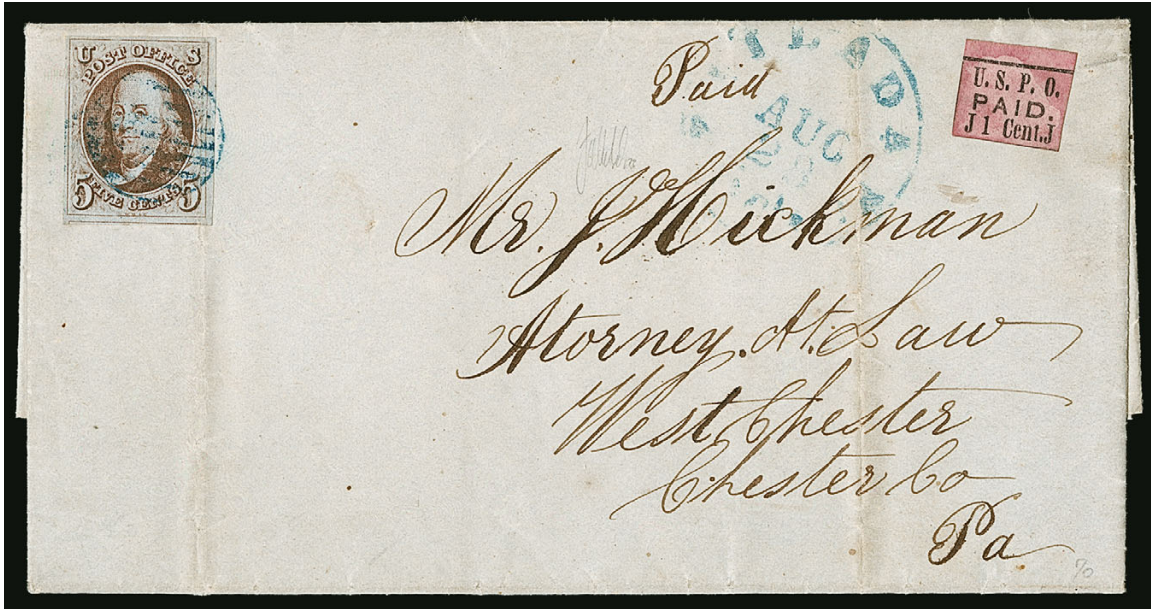 U S
POST OFFICE
FIVE CENTS
5 5
Paid
AUG
U. S. P. O.
PAID.
J 1 Cent. J
Mr. J. Hickman
Attorney. At. Law
West Chester
Chester Co
Pa
70